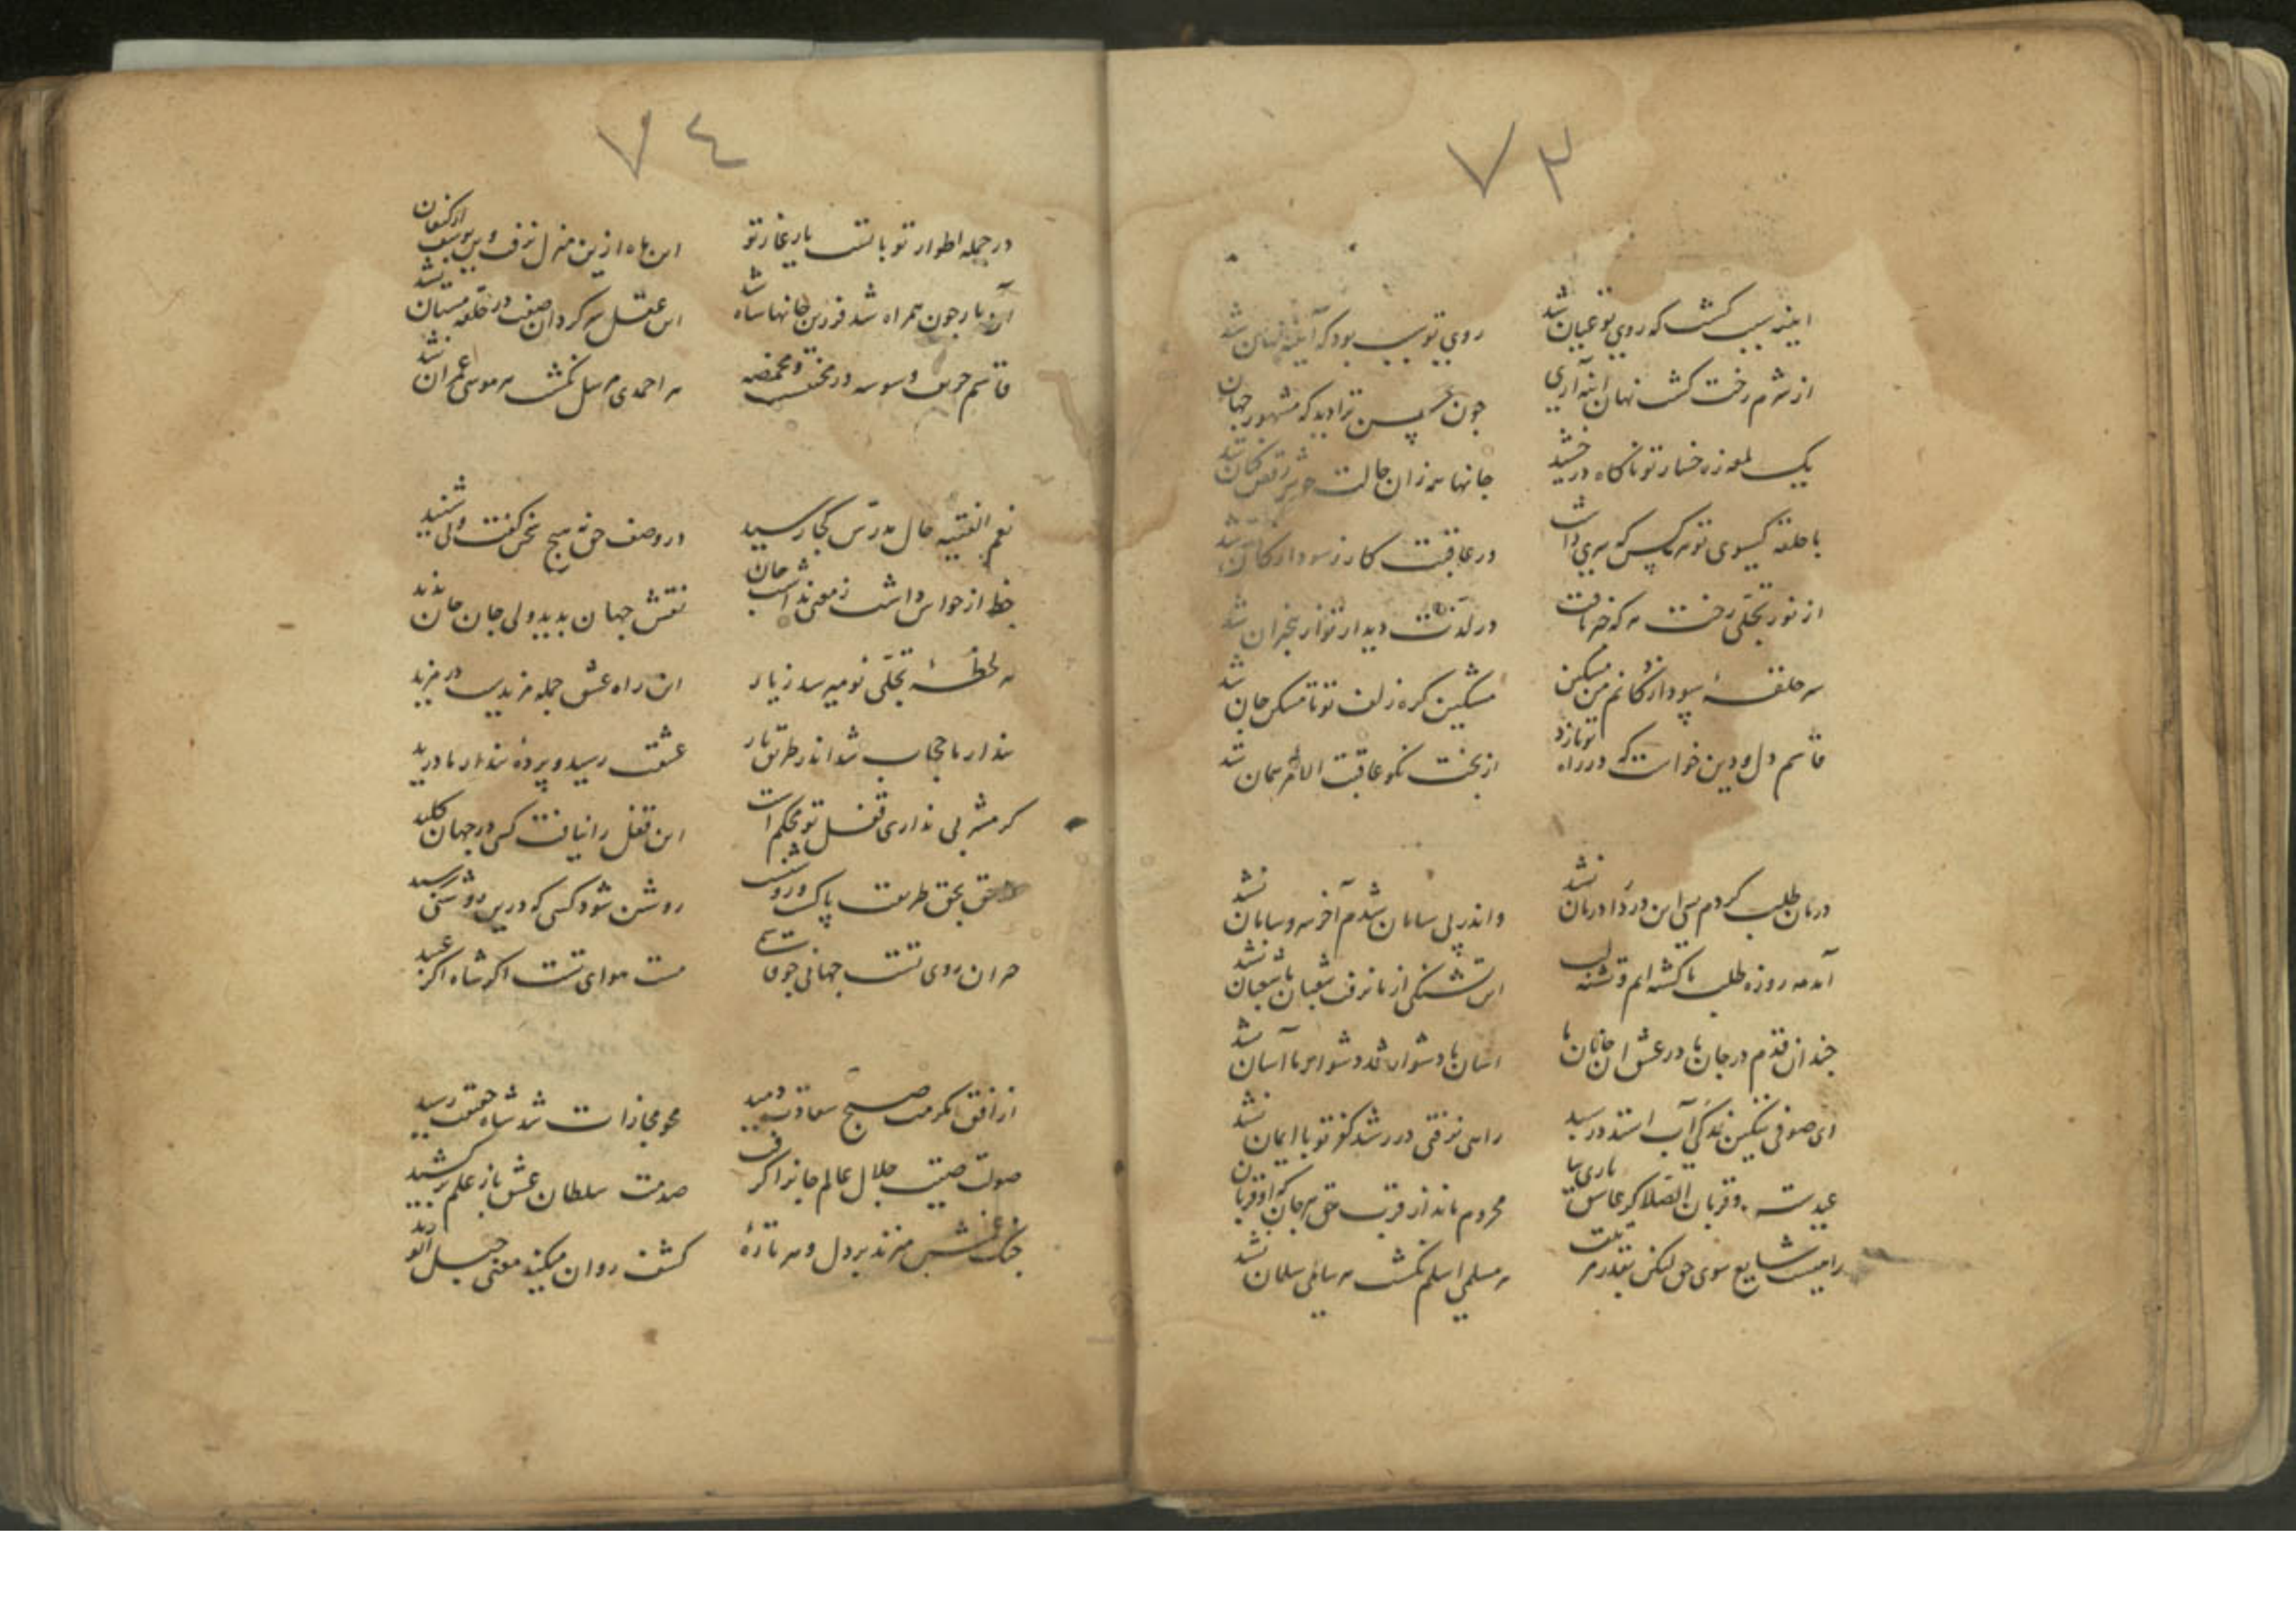 ٧٣
آینه سبب کشت که روی تو عیان شد
روی تو سبب بود که آینه نهان شد
از شرم رخت کشت نهان آینه آری
چون حسن ترا دید که مشهور جهان شد
یک لمعه ز رخسار تو ناکاه درخشید
جانها همه زان حالت خوش رقص کنان شد
با حلقه کیسوی تو هر کس که سری داشت
در عاقبت کار ز سودا زدکان شد
از نور تجلی رخت هر که خبر یافت
در لذت دیدار تو از بیخبران شد
سر حلقه سودا زدکانم من مسکین
مشکین کره زلف تو تا مسکن جان شد
قاسم دل و دین خواست که در راه تو بازد
از بخت نکو عاقبت الامر همان شد
درمان طلب کردم بسی این درد را درمان نشد
واندر پی سامان شدم آخر سر و سامان نشد
آمد مه روزه طلب ما کشته ایم و تشنه لب
این تشنکی از ما نرفت شعبان ما شعبان نشد
چندان قدم در جان ما در عشق آن جانان ما
آسان ما دشوار شد دشوار ما آسان نشد
ای صوفی
راهی نرفتی در رشد کفر تو با ایمان نشد
عیدست و قربان الصلا کر عاشقی باری بیا
محروم ماند از قرب حق هر جان که او قربان نشد
راهیست شایع سوی حق لیکن
هر مسلمی اسلم نکشت هر سایلی سلمان نشد
٧٤
در جمله اطوار تو با تست یار غار تو
این ماه ازین منزل نرفت وین یوسف از کنعان نشد
آن یار چون همراه شد فرزین جانها شاه شد
این عقل سرکردان صفت در حلقه مستان نشد
قاسم حریف وسوسه در مخنقه و مخمصه
هر احمدی مرسل نکشت هر موسی عمران نشد
نعم الفقیه حال مدرس کجا رسید
در وصف حق نه هیچ سخن کفت و نی شنید
حظ از حواس داشت ز معنی نداشت جان
نقش جهان بدید ولی جان جان ندید
هر لحظه تجلی نو میرسد ز یار
این راه عشق جمله مزیدست در مزید
پندار ما حجاب شد اندر طریق یار
عشقت رسید و پرده پندار ما درید
کر مشربی نداری قفل تو محکم است
این قفل را نیافت کسی در جهان کلید
حق بحق طریقت پاکست و روشنست
روشن شود کسی که درین روشنی رسید
حیران روی تست جهانی چو قاسمی
مست هوای تست اکر شاه اکر عبید
از افق مکرمت صبح سعادت دمید
محو مجازات شد شاه حقیقت رسید
صولت صیت جلال عالم جانرا کرفت
صدمت سلطان عشق باز علم برکشید
چنک غمش میزند بر دل و هر تاره
کشف روان میکند معنی حبل الورید